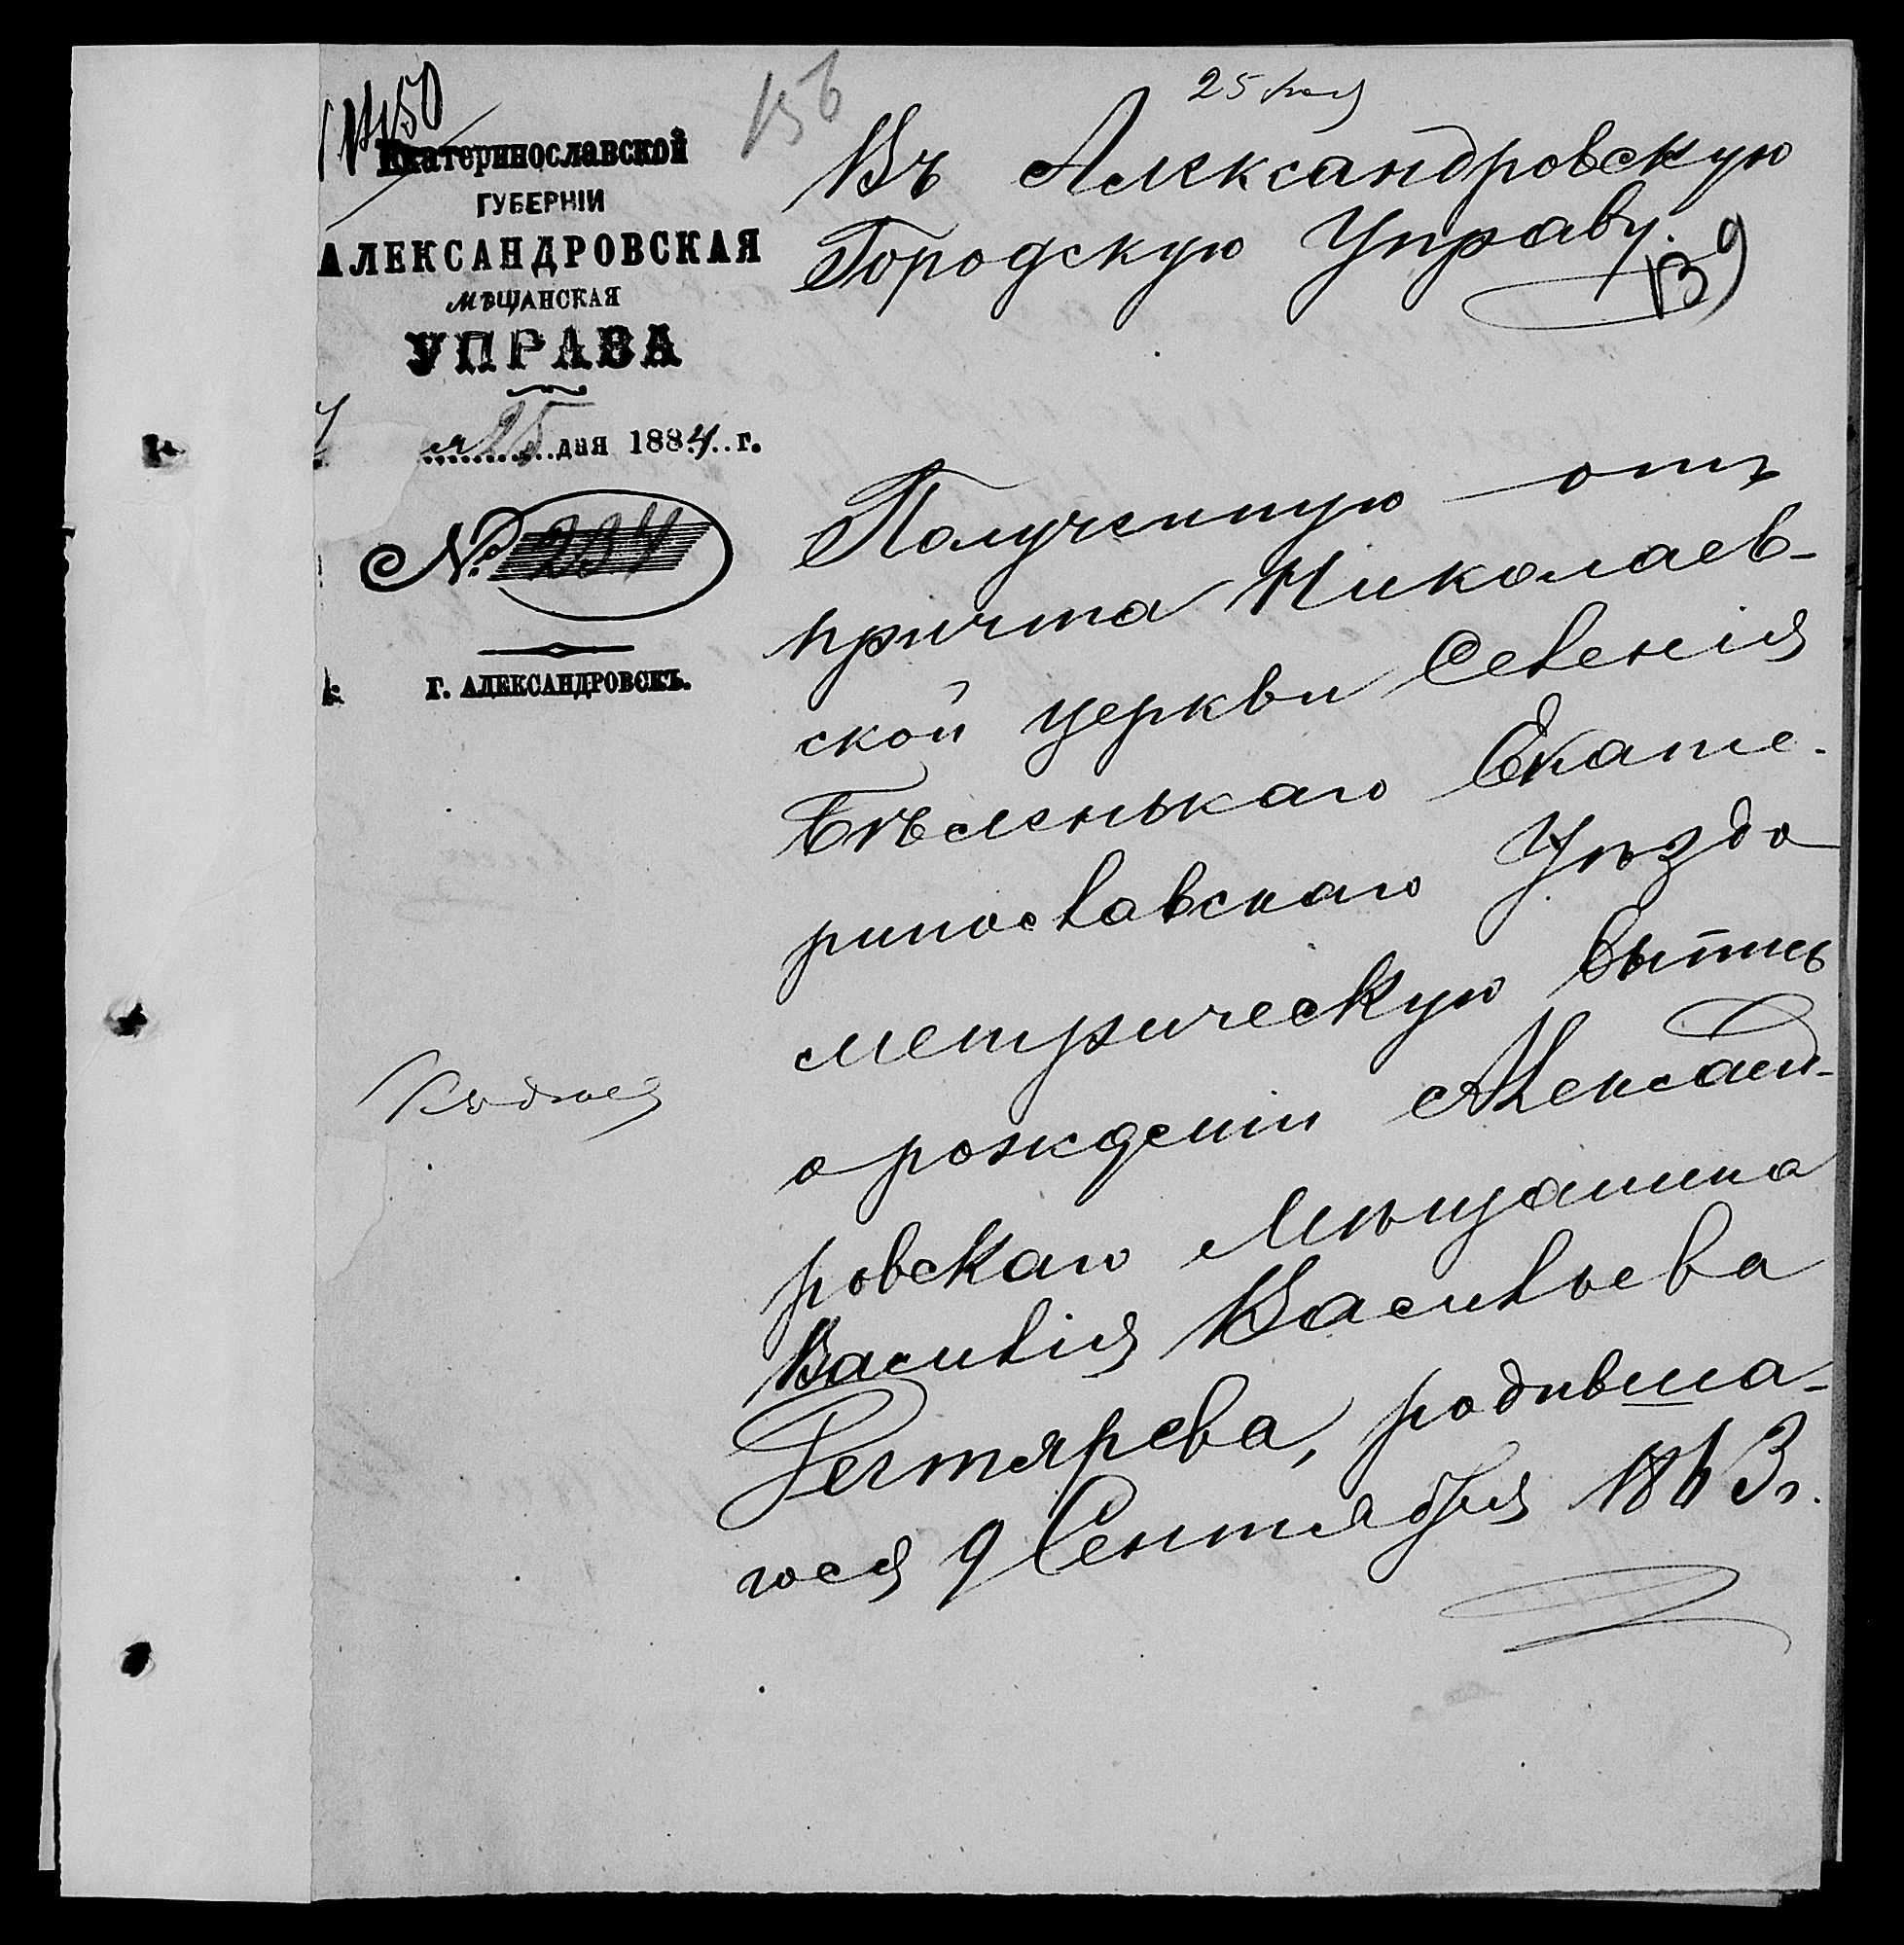 150
156
25 мая
Екатеринославской
ГУБЕРНІИ
АЛЕКСАНДРОВСКАЯ
МѢЩАНСКАЯ
УПРАВА
25 дня 1884 г.
№ 234
Г. АЛЕКСАНДРОВСКЪ.
Въ Александровскую
Городскую Управу.
139
Полученную отъ
причта Николаев-
ской церкви Селенія
Бѣленькаго Екате-
ринославскаго Уѣзда
метрическую выпись
о рожденіи Александ-
ровскаго Мѣщанина
Василія Васильева
Дегтярева, родивша-
гося 9 Сентября 1863 г.
Къ дѣлу